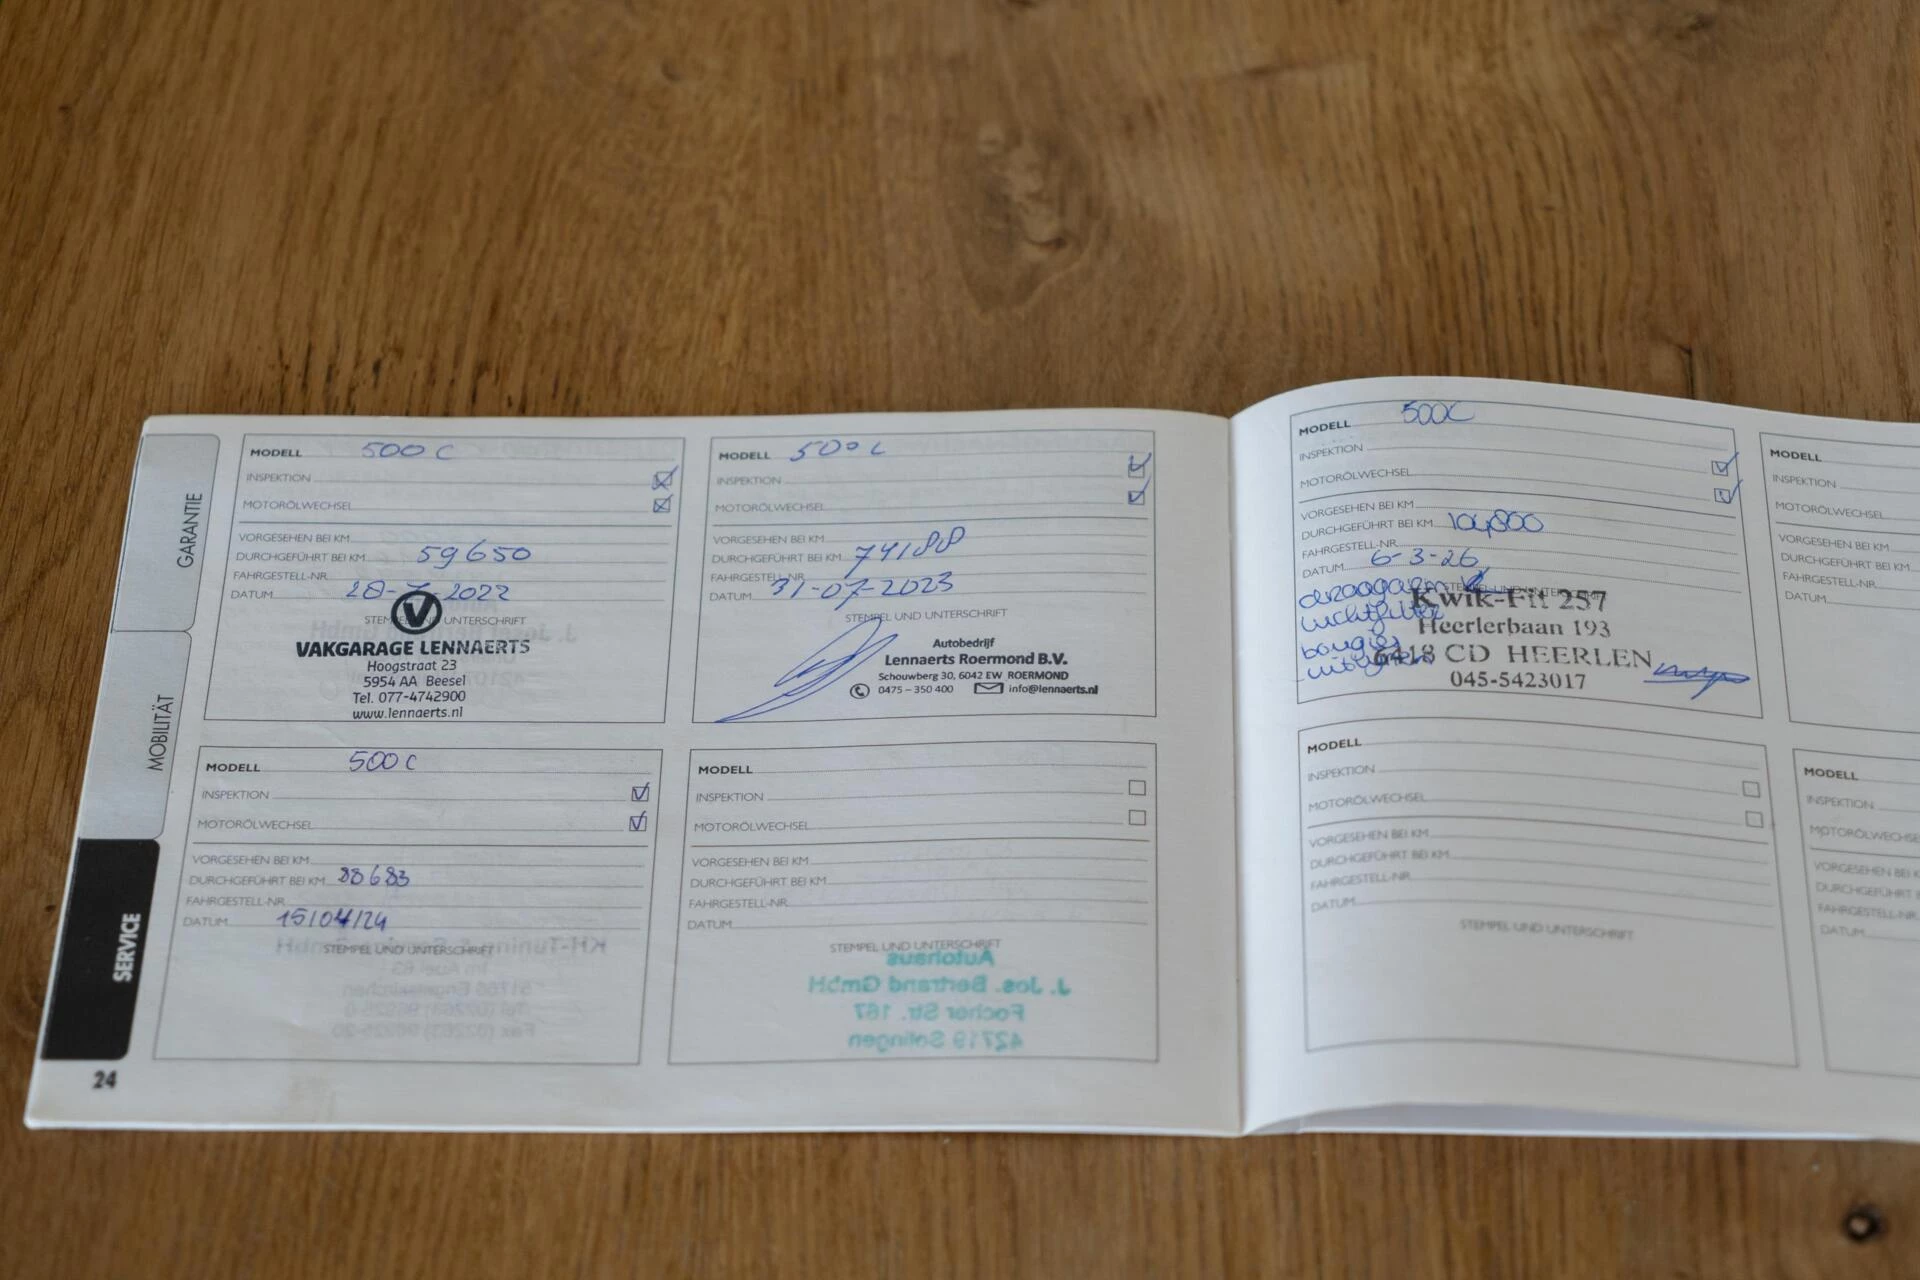 GARANTIE
MOBILITÄT
SERVICE
MODELL 500 C
INSPEKTION
MOTORÖLWECHSEL
VORGESEHEN BEI KM
DURCHGEFÜHRT BEI KM 59650
FAHRGESTELL-NR.
DATUM 28-7-2022
STEMPEL UND UNTERSCHRIFT
V
VAKGARAGE LENNAERTS
Hoogstraat 23
5954 AA Beesel
Tel. 077-4742900
www.lennaerts.nl
MODELL 500 C
INSPEKTION
MOTORÖLWECHSEL
VORGESEHEN BEI KM
DURCHGEFÜHRT BEI KM 74188
FAHRGESTELL-NR.
DATUM 31-07-2023
STEMPEL UND UNTERSCHRIFT
Autobedrijf
Lennaerts Roermond B.V.
Schouwberg 30, 6042 EW ROERMOND
0475 – 350 400 info@lennaerts.nl
MODELL 500 C
INSPEKTION
MOTORÖLWECHSEL
VORGESEHEN BEI KM
DURCHGEFÜHRT BEI KM 88683
FAHRGESTELL-NR.
DATUM 15/04/24
STEMPEL UND UNTERSCHRIFT
MODELL
INSPEKTION
MOTORÖLWECHSEL
VORGESEHEN BEI KM
DURCHGEFÜHRT BEI KM
FAHRGESTELL-NR.
DATUM
STEMPEL UND UNTERSCHRIFT
Autohaus
J. Jos. Bertrand GmbH
Focher Str. 167
42719 Solingen
24
MODELL 500C
INSPEKTION
MOTORÖLWECHSEL
VORGESEHEN BEI KM
DURCHGEFÜHRT BEI KM 104800
FAHRGESTELL-NR.
DATUM 6-3-26
luchtfilter
bougies
Kwik-Fit 257
Heerlerbaan 193
6418 CD HEERLEN
045-5423017
MODELL
INSPEKTION
MOTORÖLWECHSEL
VORGESEHEN BEI KM
DURCHGEFÜHRT BEI KM
FAHRGESTELL-NR.
DATUM
STEMPEL UND UNTERSCHRIFT
MODELL
INSPEKTION
MOTORÖLWECHSEL
VORGESEHEN BEI KM
DURCHGEFÜHRT BEI
FAHRGESTELL-NR.
DATUM
MODELL
INSPEKTION
MOTORÖLWECHSE
VORGESEHEN BEI K
DURCHGEFÜHRT BEI
FAHRGESTELL-NR
DATUM